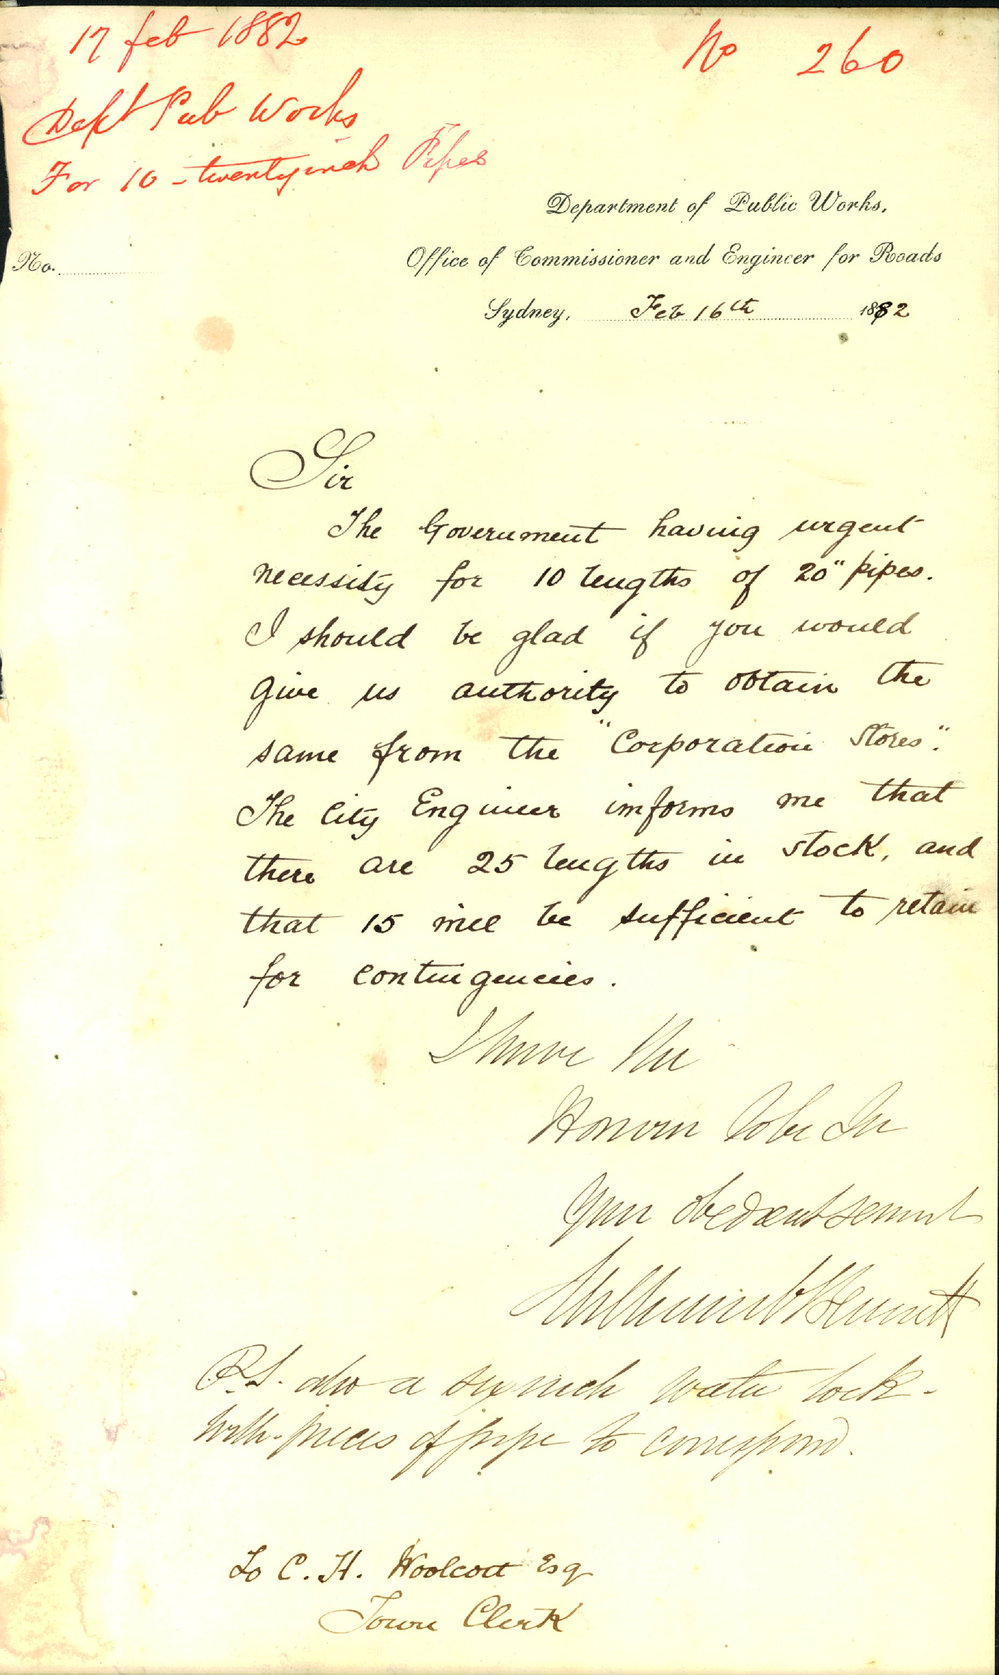 17 feb 1882
No 260
Dept Pub Works
For 10 - twentyinch Pipes
Department of Public Works,
No.
Office of Commissioner and Engineer for Roads
Sydney, Feb 16th 1882
Sir
The Government having urgent
necessity for 10 lengths of 20" pipes.
I should be glad if you would
give us authority to obtain the
same from the "Corporation Stores".
The City Engineer informs me that
there are 25 lengths in stock, and
that 15 will be sufficient to retain
for contingencies.
I have the
Honour to be Sir
Your obedient servant
Bennett
P.S. also a six inch water cock -
with pieces of pipe to correspond.
To C. H. Woolcott Esq
Town Clerk